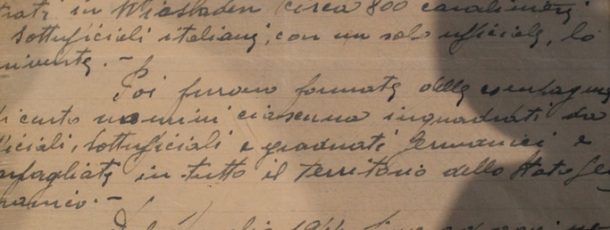 trati in Wiesbaden circa 800 carabinieri
sottufficiali italiani, con un solo ufficiale, lo
Poi furono formate delle compagnie
di cento uomini ciascuna inquadrati da
ficiali, sottufficiali e graduati Germanici e
in tutto il territorio dello Stato Ger
manico.-